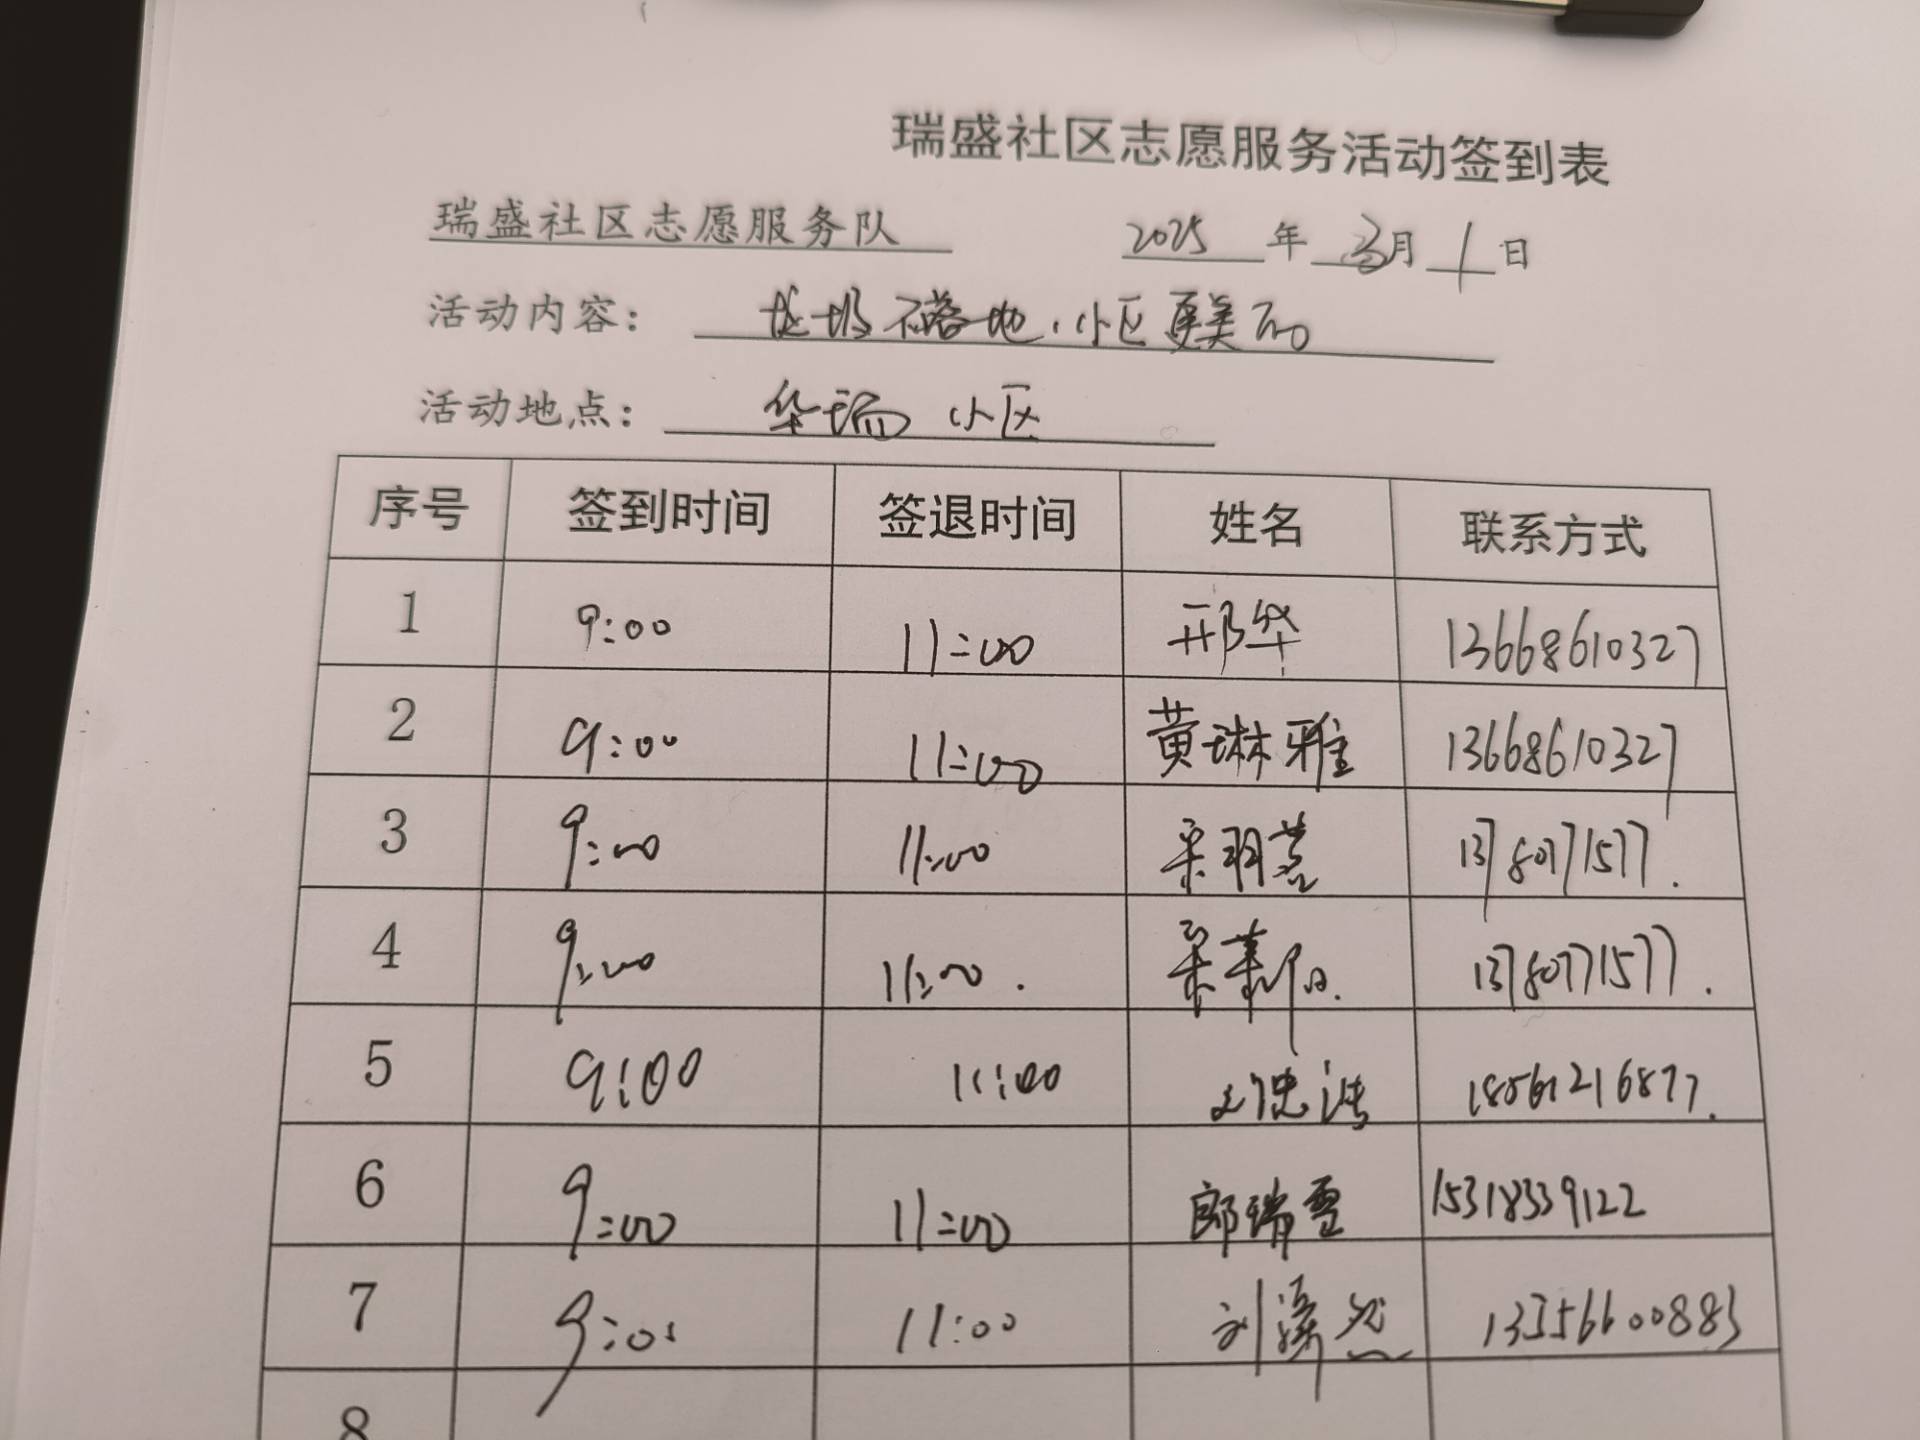 瑞盛社区志愿服务活动签到表
瑞盛社区志愿服务队 2025 年 3 月 1 日
活动内容： 垃圾不落地，小区更美丽
活动地点： 华瑞小区
序号 签到时间 签退时间 姓名 联系方式
1 9:00 11:00 邢华 13668610327
2 9:00 11:00 黄琳雅 13668610327
3 9:00 11:00 13780771577.
4 9:00 11:00. 13780771577.
5 9:00 11:00 18561216877.
6 9:00 11:00 郎瑞雪 15318339122
7 9:00 11:00 刘 然 13356600883
8